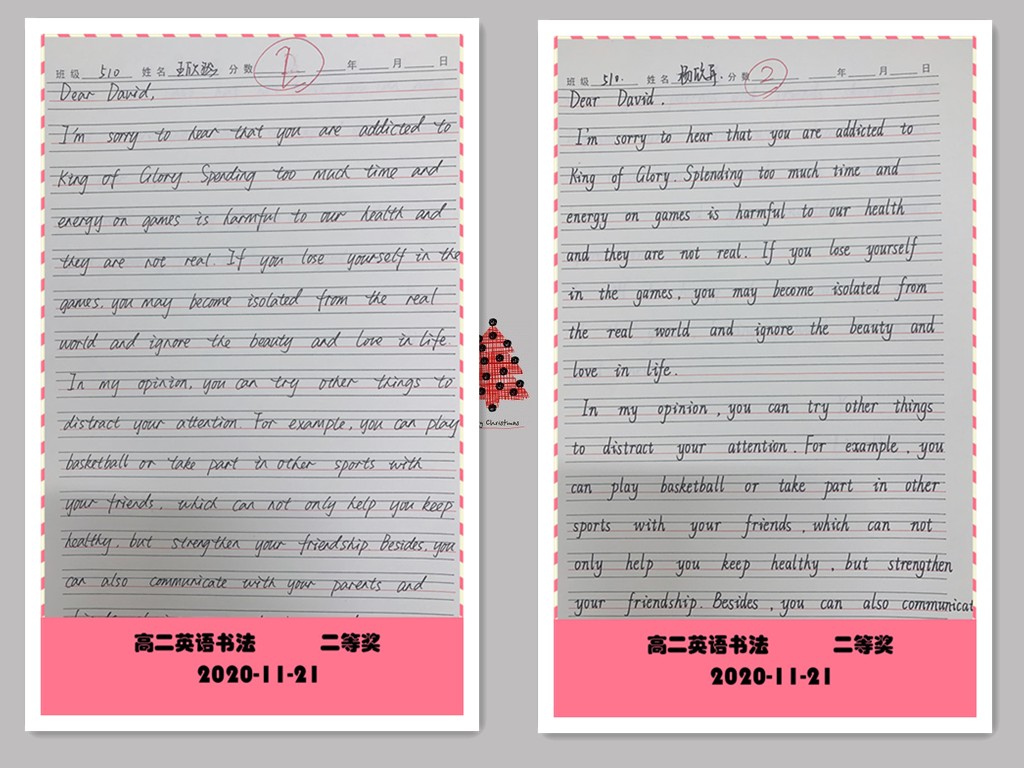 班级 510 姓名 分数 2 年 月 日
Dear David,
I'm sorry to hear that you are addicted to
King of Glory. Spending too much time and
energy on games is harmful to our health and
they are not real. If you lose yourself in the
games, you may become isolated from the real
world and ignore the beauty and love in life.
In my opinion, you can try other things to
distract your attention. For example, you can play
basketball or take part in other sports with
your friends, which can not only help you keep
healthy, but strengthen your friendship. Besides, you
can also communicate with your parents and
高二英语书法 二等奖
2020-11-21
Christmas
班级 510. 姓名 分数 2 年 月 日
Dear David.
I'm sorry to hear that you are addicted to
King of Glory. Splending too much time and
energy on games is harmful to our health
and they are not real. If you lose yourself
in the games, you may become isolated from
the real world and ignore the beauty and
love in life.
In my opinion, you can try other things
to distract your attention. For example, you
can play basketball or take part in other
sports with your friends, which can not
only help you keep healthy, but strengthen
your friendship. Besides, you can also communicat
高二英语书法 二等奖
2020-11-21